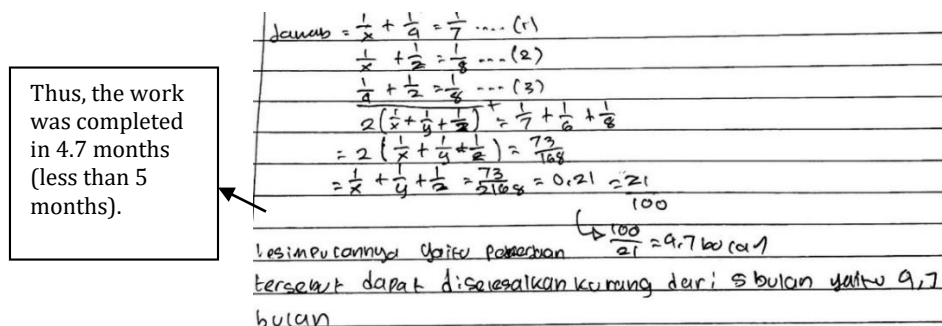 Thus, the work
was completed
in 4.7 months
(less than 5
months).
Jawab = 1/x + 1/y = 1/7 .... (1)
1/x + 1/z = 1/8 ... (2)
1/y + 1/z = 1/8 ... (3)
2(1/x + 1/y + 1/z) + = 1/7 + 1/6 + 1/8
= 2(1/x + 1/y + 1/z) = 73/168
= 1/x + 1/y + 1/z = 73/2168 = 0,21 = 21/100
↳ 100/21 = 4,7 bulan
kesimpulannya yaitu pekerjaan
tersebut dapat diselesaikan kurang dari 5 bulan yaitu 4,7
bulan